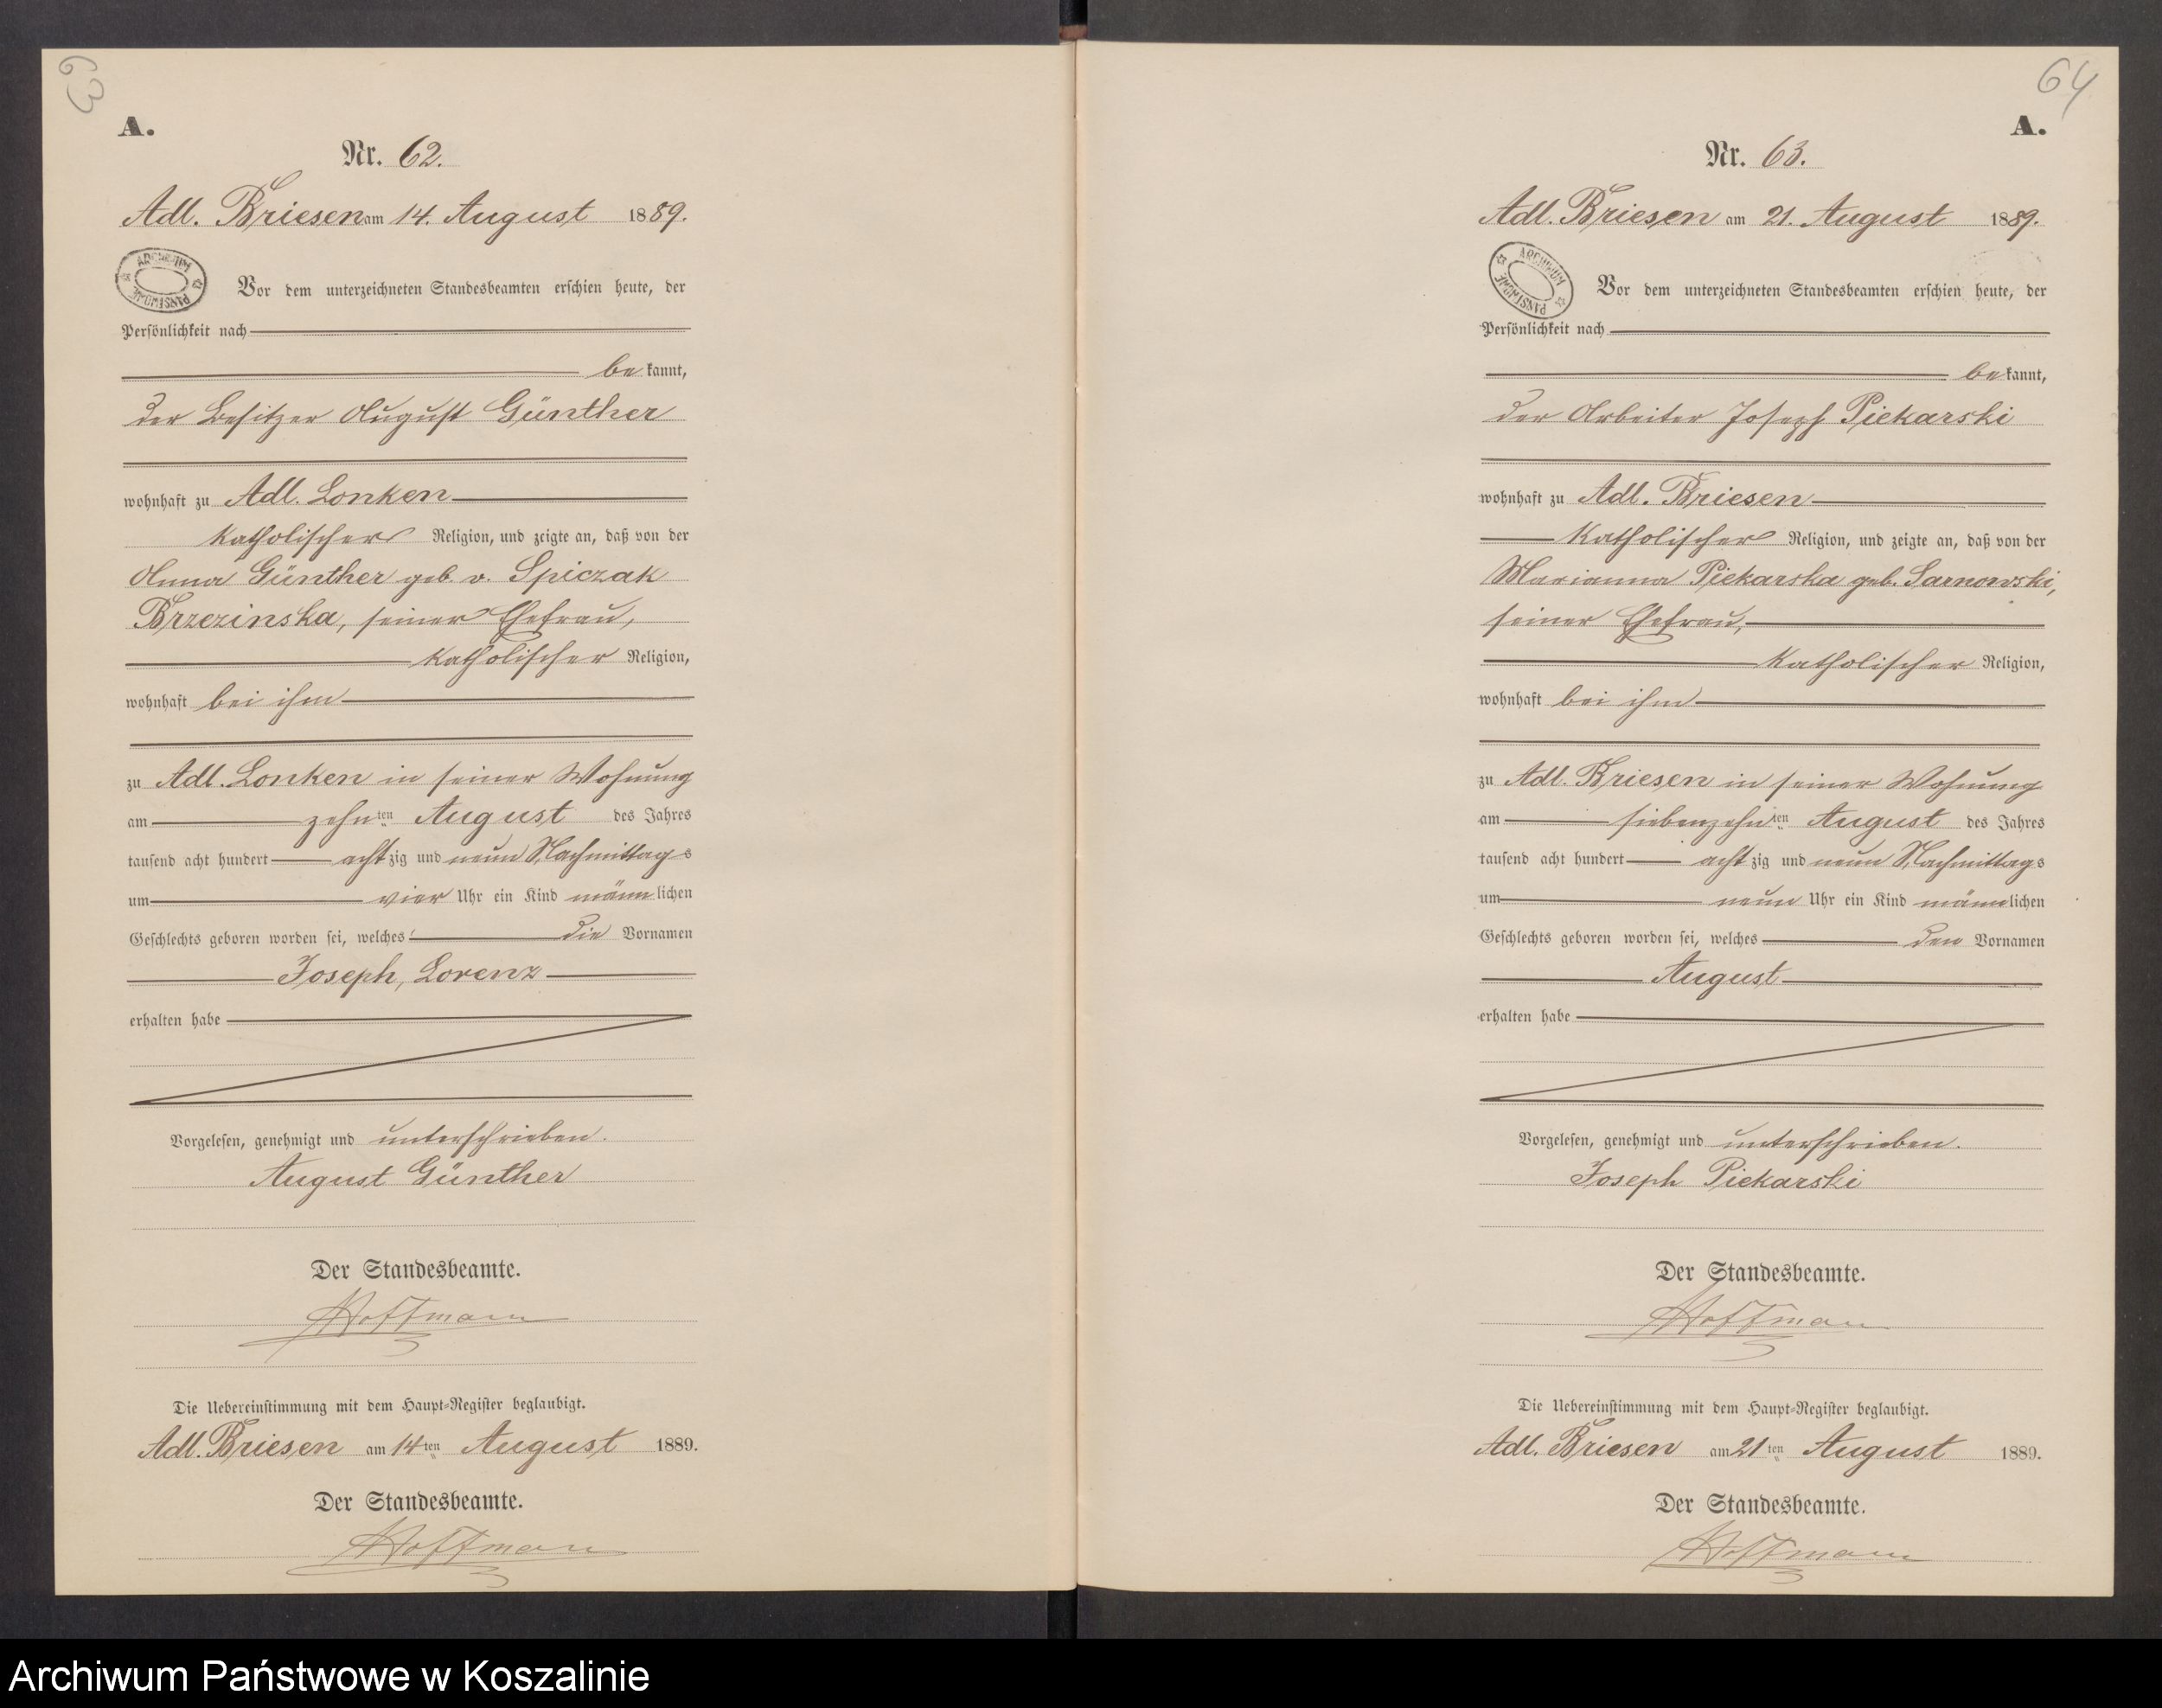 63
A.
Nr. 62.
Adl. Briesen am 14. August 1889.
ARCHIWUM PAŃSTWOWE
Vor dem unterzeichneten Standesbeamten erschien heute, der
Persönlichkeit nach
be kannt,
der Besitzer August Günther
wohnhaft zu Adl. Lonken
katholischer Religion, und zeigte an, daß von der
Anna Günther geb. v. Spiczak
Brzezinska, seiner Ehefrau,
katholischer Religion,
wohnhaft bei ihm
zu Adl. Lonken in seiner Wohnung
am zehnten August des Jahres
tausend acht hundert achtzig und neun Nachmittags
um vier Uhr ein Kind männlichen
Geschlechts geboren worden sei, welches die Vornamen
Joseph, Lorenz
erhalten habe
Vorgelesen, genehmigt und unterschrieben.
August Günther
Der Standesbeamte.
Hoffmann
Die Uebereinstimmung mit dem Haupt-Register beglaubigt.
Adl. Briesen am 14ten August 1889.
Der Standesbeamte.
Hoffmann
64
A.
Nr. 63.
Adl. Briesen am 21. August 1889.
ARCHIWUM PAŃSTWOWE
Vor dem unterzeichneten Standesbeamten erschien heute, der
Persönlichkeit nach
be kannt,
der Arbeiter Joseph Piekarski
wohnhaft zu Adl. Briesen
katholischer Religion, und zeigte an, daß von der
Marianna Piekarska geb. Sarnowski,
seiner Ehefrau,
katholischer Religion,
wohnhaft bei ihm
zu Adl. Briesen in seiner Wohnung
am siebenzehnten August des Jahres
tausend acht hundert achtzig und neun Nachmittags
um neun Uhr ein Kind männlichen
Geschlechts geboren worden sei, welches den Vornamen
August
erhalten habe
Vorgelesen, genehmigt und unterschrieben.
Joseph Piekarski
Der Standesbeamte.
Hoffmann
Die Uebereinstimmung mit dem Haupt-Register beglaubigt.
Adl. Briesen am 21ten August 1889.
Der Standesbeamte.
Hoffmann
Archiwum Państwowe w Koszalinie